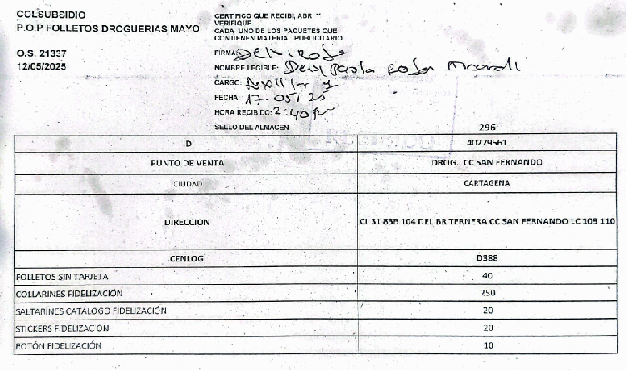 COLSUBSIDIO
P.O.P FOLLETOS DROGUERIAS MAYO
O.S. 21337
12/05/2025
CERTIFICO QUE RECIBI, ABRI Y
VERIFIQUE
CADA UNO DE LOS PAQUETES QUE
CONTIENEN MATERIAL PUBLICITARIO
FIRMA:
NOMBRE LEGIBLE: Deisy Paola
CARGO:
FECHA 17-05/25
HORA RECIBIDO: 2:40 P
SELLO DEL ALMACEN
296
D
PUNTO DE VENTA DROG. CC SAN FERNANDO
CIUDAD CARTAGENA
DIRECCION CC SAN FERNANDO LC 109 110
CENLOG D388
FOLLETOS SIN TARJETA 40
COLLARINES FIDELIZACIÓN 250
SALTARINES CATALOGO FIDELIZACIÓN 20
STICKERS FIDELIZACIÓN 20
BOTÓN FIDELIZACIÓN 10